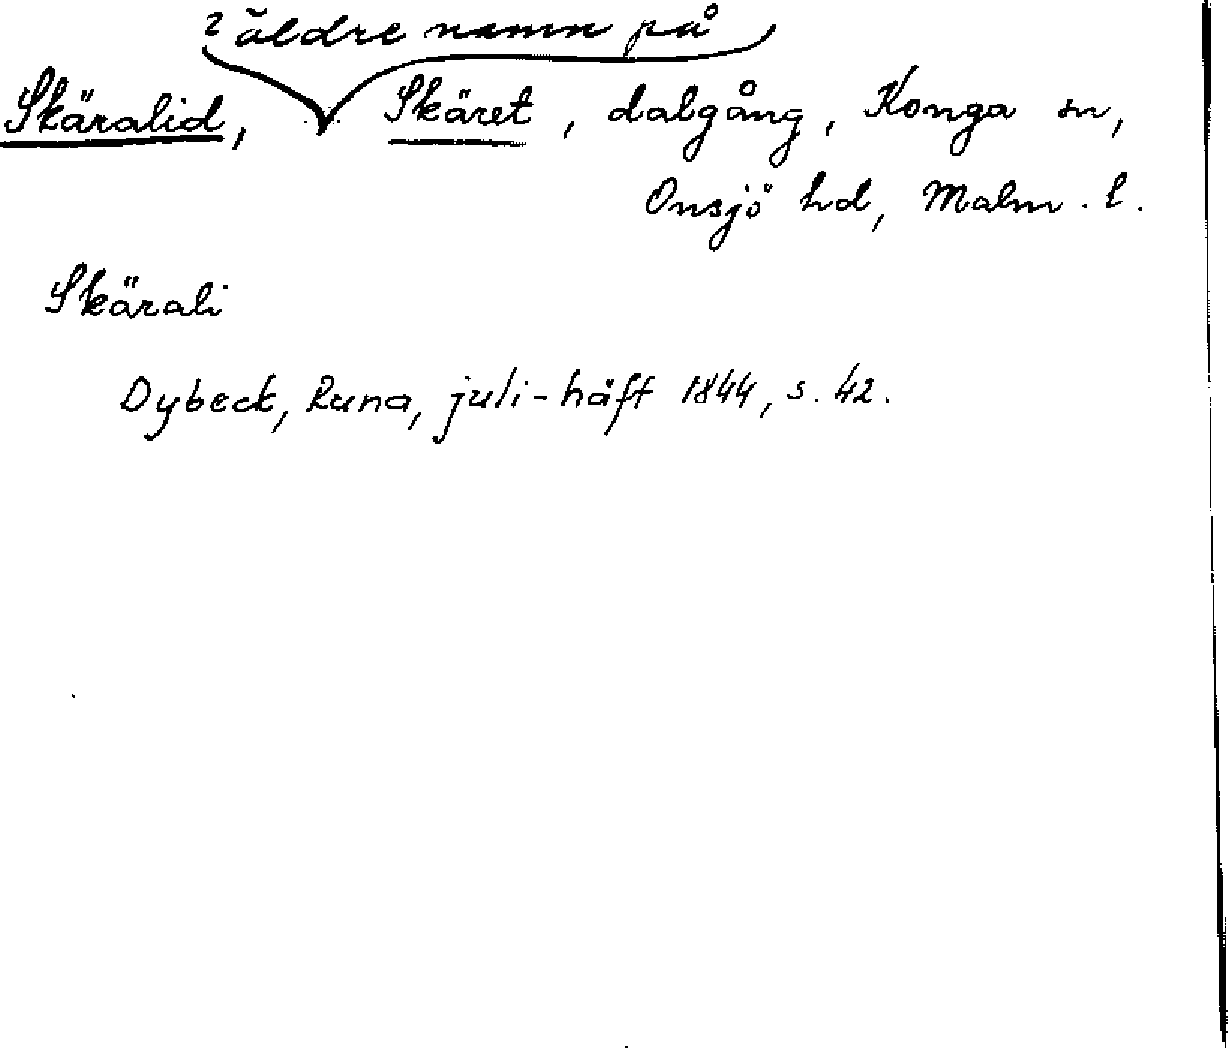 ? äldre namn på
Skäralid, Skäret, dalgång, Konga sn,
Onsjö hd, Malm. l.
Skärali
Dybeck, Runa, juli-häft 1844, s. 42.